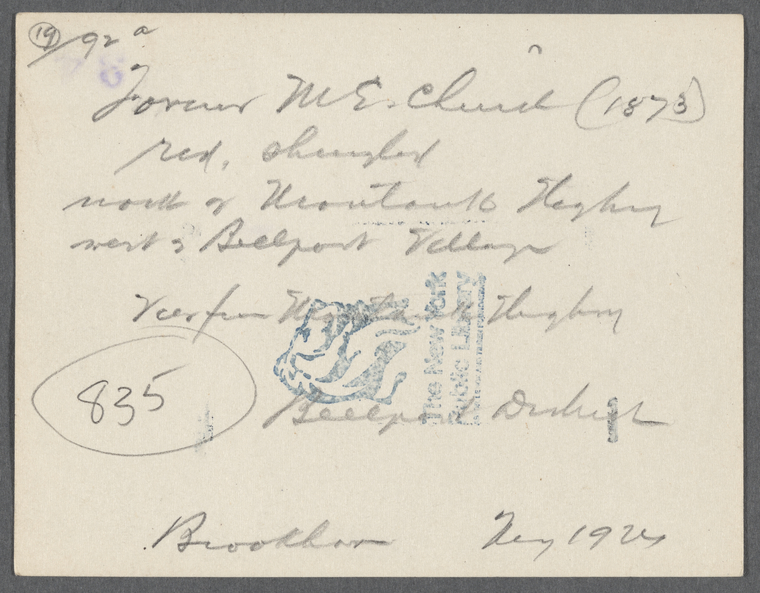 19/92 a
Former M.E. Church (1873)
red, shingled
north of Montauk Highway
west of Bellport Village
View from Montauk Highway
The New York
Public Library
835
Bellport District
Brookhaven 1924